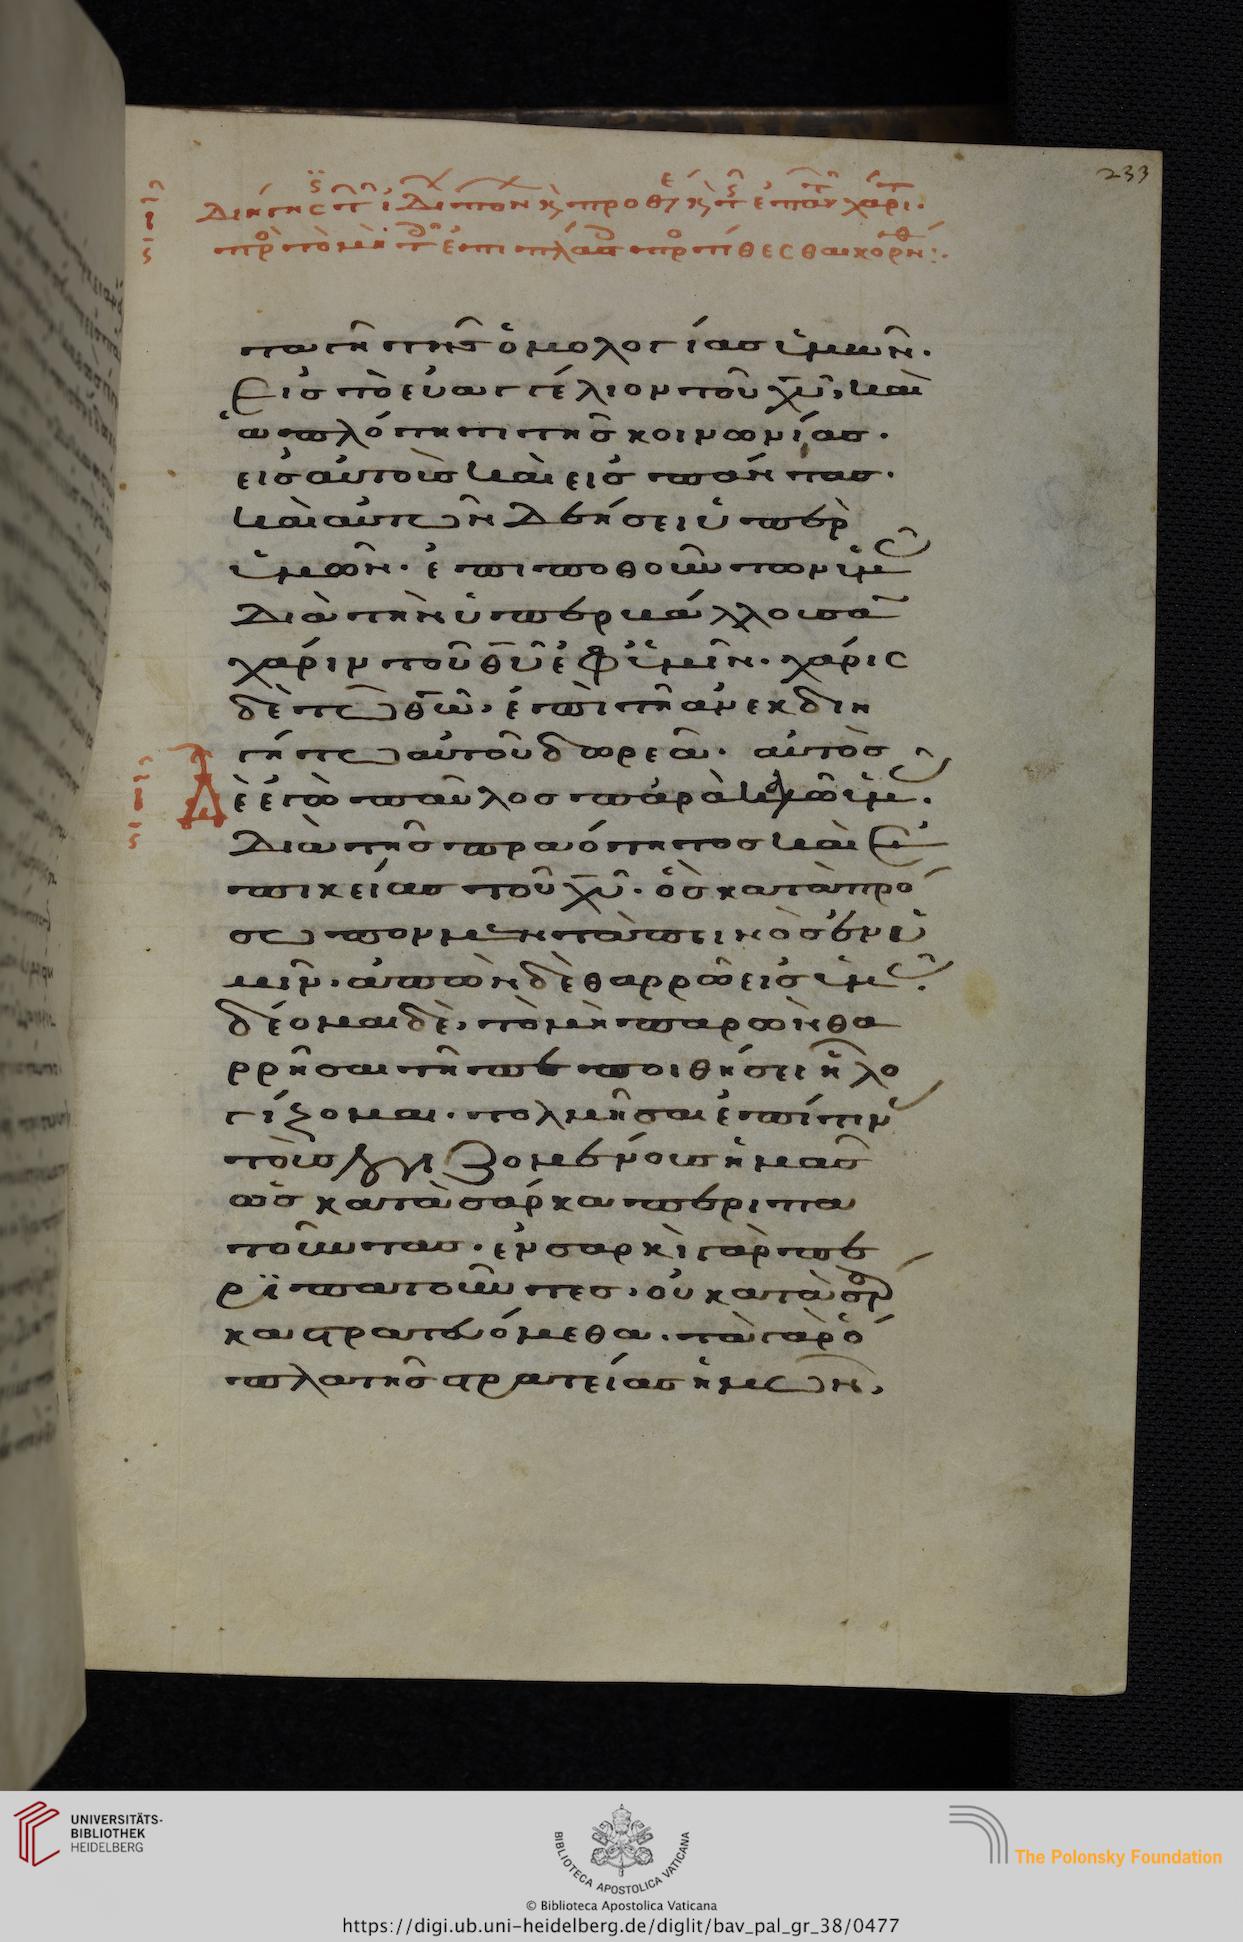 233
ταγῆ τῆς ὁμολογίας ὑμῶν.
Εἰς τὸ εὐαγγέλιον τοῦ χ̅υ̅, καὶ
ἁπλότητι τῆς κοινωνίας.
εἰς αὐτοὺς καὶ εἰς πάντας.
καὶ αὐτῶν δεήσει ὑπὲρ
ὑμῶν. ἐπιποθούντων ὑμ
διὰ τὴν ὑπερβάλλουσα
χάριν τοῦ θ̅υ̅ ἐφ' ὑμῖν. χάρις
δὲ τῶ θ̅ω̅, ἐπὶ τῆ ἀνεκδιη
γήτω αὐτοῦ δωρεᾶ. αὐτὸς
Δὲ ἐγὼ παῦλος παρακαλῶ ὑμ.
διὰ τῆς πραότητος καὶ ἐ
πικείας τοῦ χ̅υ̅. ὃς κατὰ πρό
σωπον μὲν ταπεινὸς ἐν ὑ
μῖν. ἀπὼν δὲ θαρρῶ εἰς ὑμ.
δέομαι δὲ, τὸ μὴ παρὼν θα
ρρῆσαι τῆ πεποιθήσει ἧ λο
γίζομαι. τολμῆσαι ἐπί τιν
τοὺς λογιζομένους ἡμᾶς
ὡς κατὰ σάρκα περιπα
τοῦντας. ἐν σαρκὶ γὰρ πε
ριπατοῦντες, οὐ κατὰ σάρ
κα στρατευόμεθα. τὰ γὰρ ὅ
πλα τῆς στρατείας ἡμῶν,
UNIVERSITÄTS-
BIBLIOTHEK
HEIDELBERG
BIBLIOTECA APOSTOLICA VATICANA
The Polonsky Foundation
© Biblioteca Apostolica Vaticana
https://digi.ub.uni-heidelberg.de/diglit/bav_pal_gr_38/0477